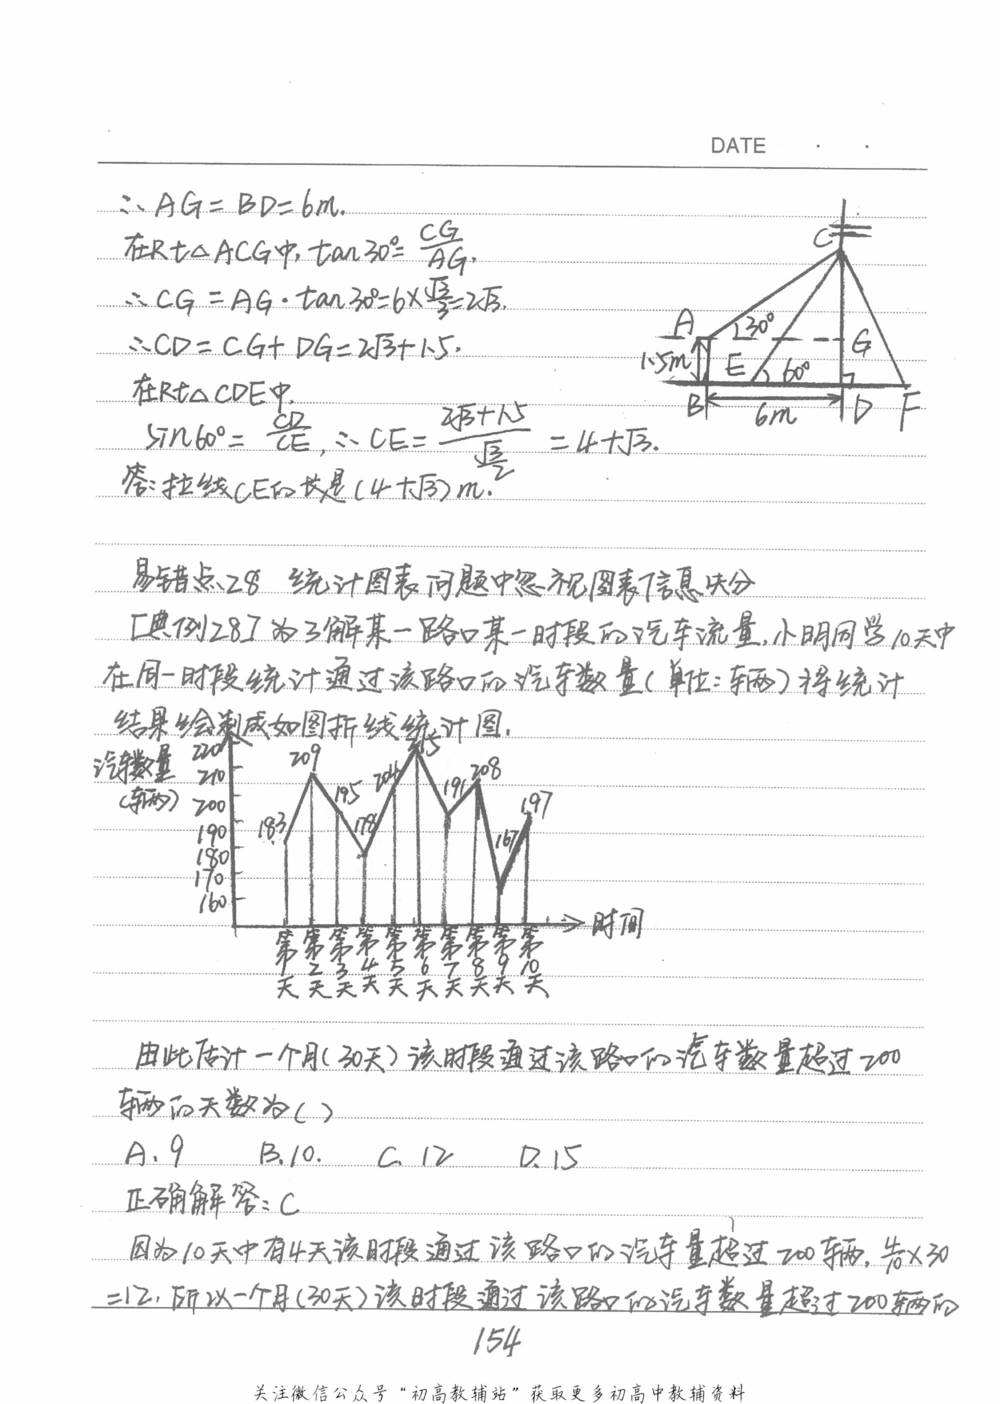 DATE
∴ AG = BD = 6m.
在Rt△ACG中, tan30°= CG/AG.
∴ CG = AG·tan30°=6×√3/3=2√3.
∴CD = CG+DG=2√3+1.5.
在Rt△CDE中,
sin60°= CD/CE, ∴ CE= (2√3+1.5)/(√3/2) = 4+√3.
答:拉线CE的长是(4+√3)m.
C
A
30°
G
1.5m
E
60°
B
6m
D
F
易错点28 统计图表问题中忽视图表信息失分
[典例28] 为了解某一路口某一时段的汽车流量,小明同学10天中
在同一时段统计通过该路口的汽车数量(单位:车辆)将统计
结果绘制成如图折线统计图.
汽车数量
(车辆)
220
210
200
190
180
170
160
183
209
195
178
204
215
191
208
167
197
时间
第1天
第2天
第3天
第4天
第5天
第6天
第7天
第8天
第9天
第10天
由此估计一个月(30天)该时段通过该路口的汽车数量超过200
车辆的天数为( )
A. 9 B.10. C. 12 D.15
正确解答: C
因为10天中有4天该时段通过该路口的汽车量超过200车辆, 4/10×30
=12, 所以一个月(30天)该时段通过该路口的汽车数量超过200车辆的
154
关注微信公众号“初高教辅站”获取更多初高中教辅资料